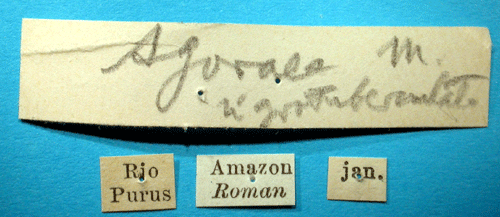 Agoraea M.
nigrotuberculata
Rio
Purus
Amazon
Roman
jan.